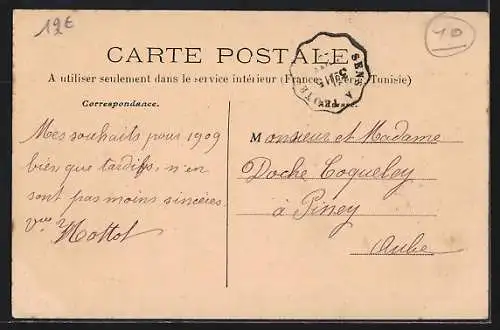 12€
10
CARTE POSTALE
SENS A TROYES
A utiliser seulement dans le service intérieur (France, Algérie, Tunisie)
Correspondance.
Mes souhaits pour 1909
bien que tardifs, n'en
sont pas moins sincères
Vve Mottot
Monsieur et Madame
Doche Coqueley
à Piney
Aube